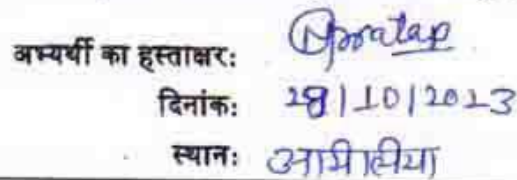 अभ्यर्थी का हस्ताक्षर: Pratap
दिनांक: 28/10/2023
स्थान: